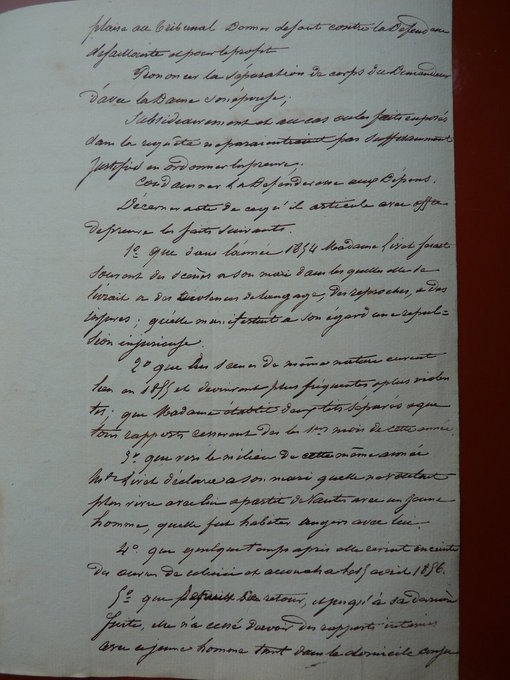 plaise au Tribunal Donner defaut contre la Defenderesse
defaillante et pour le profit
Prononcer la séparation de corps du Demandeur
d'avec la Dame son épouse;
Subsidiairement et au cas ou les faits exposés
dans la requête ne paraitraient pas suffisamment
justifiés en ordonner la preuve;
Condamner la Défenderesse aux Dépens.
Décerner acte de ce qu'il articule avec offre
de preuve les faits suivants.
1o que dans l'année 1854 Madame faisait
souvent des scènes a son mari dans les quelles elle se
livrait a des violences de langage, des reproches, a des
injures; qu'elle manifestait a son égard une répul-
sion injurieuse.
2o que des scènes de même nature eurent
lieu en 1855 et devinrent plus fréquentes, plus violen-
tes; que Madame établit deux lits séparés et que
tous rapports cessèrent dès les 1ers mois de cette année.
3o que vers le milieu de cette même année
Mde déclara a son mari quelle ne voulait
plus vivre avec lui a partit de Nantes avec un jeune
homme, quelle fut habiter angers avec lui
4o que quelque temps après elle revint enceinte
des œuvres de celui-ci et accoucha le 5 avril 1856.
5o que depuis son retour, et jusqu'à sa dernière
fuite, elle n'a cessé d'avoir des rapports intimes
avec ce jeune homme tant dans le domicile conju